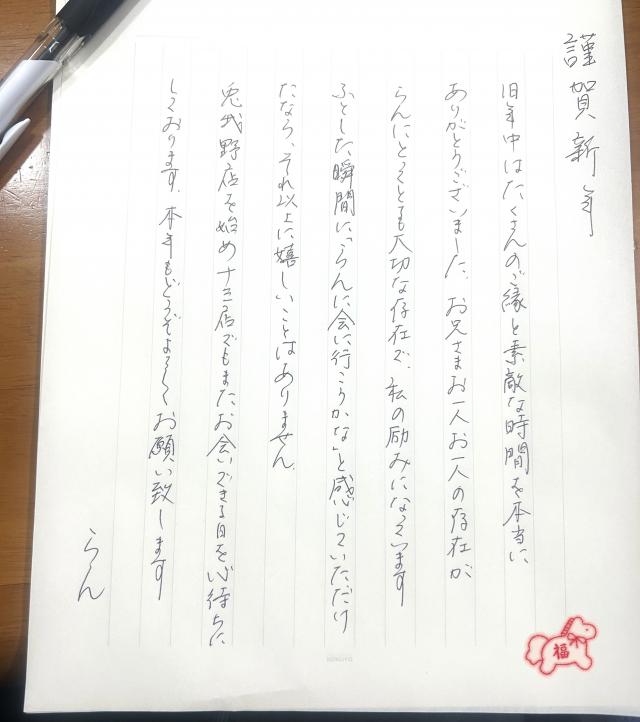 謹賀新年
旧年中はたくさんのご縁と素敵な時間を本当に
ありがとうございました。お兄さまお一人お一人の存在が
らんにとってとても大切な存在で、私の励みになっています
ふとした瞬間に「らんに会いに行こうかな」と感じていただけ
たなら、それ以上に嬉しいことはありません。
兎我野店を始め十三店でもまたお会いできる日を心待ちに
しております。本年もどうぞよろしくお願い致します
らん
福
KOKUYO